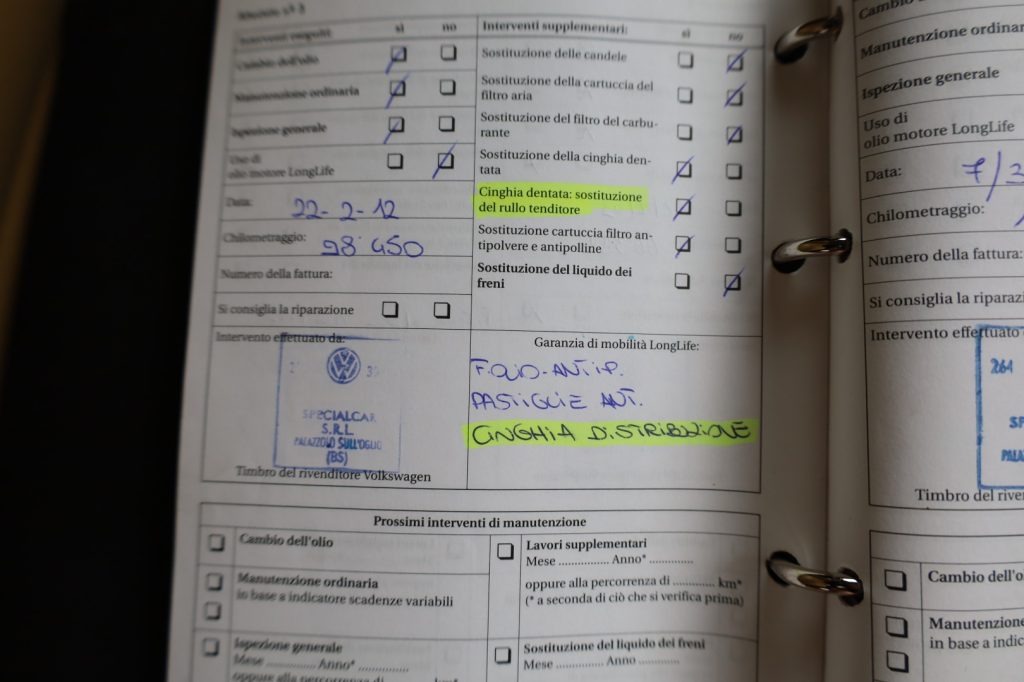 Interventi eseguiti: sì no
Cambio dell'olio
Manutenzione ordinaria
Ispezione generale
Uso di
olio motore LongLife
Data: 22-2-12
Chilometraggio: 98 450
Numero della fattura:
Si consiglia la riparazione
Interventi supplementari: sì no
Sostituzione delle candele
Sostituzione della cartuccia del
filtro aria
Sostituzione del filtro del carbu-
rante
Sostituzione della cinghia den-
tata
Cinghia dentata: sostituzione
del rullo tenditore
Sostituzione cartuccia filtro an-
tipolvere e antipolline
Sostituzione del liquido dei
freni
Intervento effettuato da:
SPECIALCAR
S.R.L.
PALAZZOLO SULL'OGLIO
(BS)
Timbro del rivenditore Volkswagen
Garanzia di mobilità LongLife:
PASTIGLIE ANT.
CINGHIA DISTRIBUZIONE
Prossimi interventi di manutenzione
Cambio dell'olio
Manutenzione ordinaria
in base a indicatore scadenze variabili
Ispezione generale
Mese .............. Anno* ..............
oppure alla percorrenza di ............ km*
Lavori supplementari
Mese .............. Anno* ............
oppure alla percorrenza di ............ km*
(* a seconda di ciò che si verifica prima)
Sostituzione del liquido dei freni
Mese .............. Anno ............
Cambio
Manutenzione ordinar
Ispezione generale
Uso di
olio motore LongLife
Data: 7/3
Chilometraggio:
Numero della fattura:
Si consiglia la riparazi
Intervento effettuato
264
SP
PALA
Timbro del rive
Cambio dell'o
Manutenzione
in base a indic